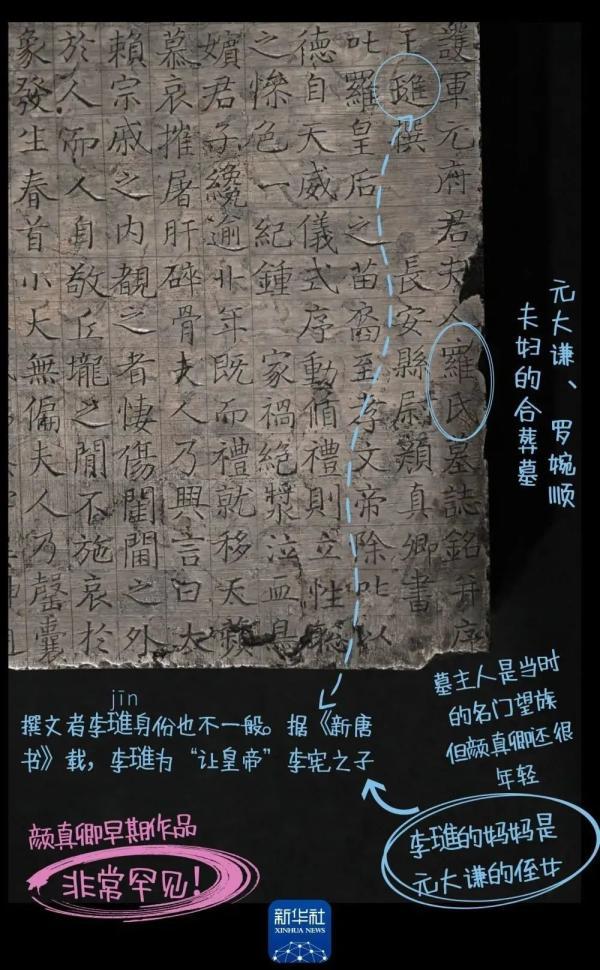 護軍元府君夫人羅氏墓誌銘并序
王璡撰 長安縣尉顏真卿書
叱羅皇后之苗裔至孝文帝除叱以
德自天威儀式序動循禮則立性聰
之慘色一紀鍾 家禍絶漿泣血
嬪君子纔逾廿年既而禮就移天蘋
慕哀摧屠肝碎骨夫人乃興言曰太
賴宗戚之內覩之者悽傷閨閫之外
於人而人自敬丘壠之間不施哀於
象發生春首小大無偏夫人乃罄囊
元大谦、罗婉顺
夫妇的合葬墓
jīn
撰文者李璡身份也不一般。据《新唐
书》载，李璡为“让皇帝”李宪之子
墓主人是当时
的名门望族
但颜真卿还很
年轻
李璡的妈妈是
元大谦的侄女
颜真卿早期作品
非常罕见！
新华社
XINHUA NEWS